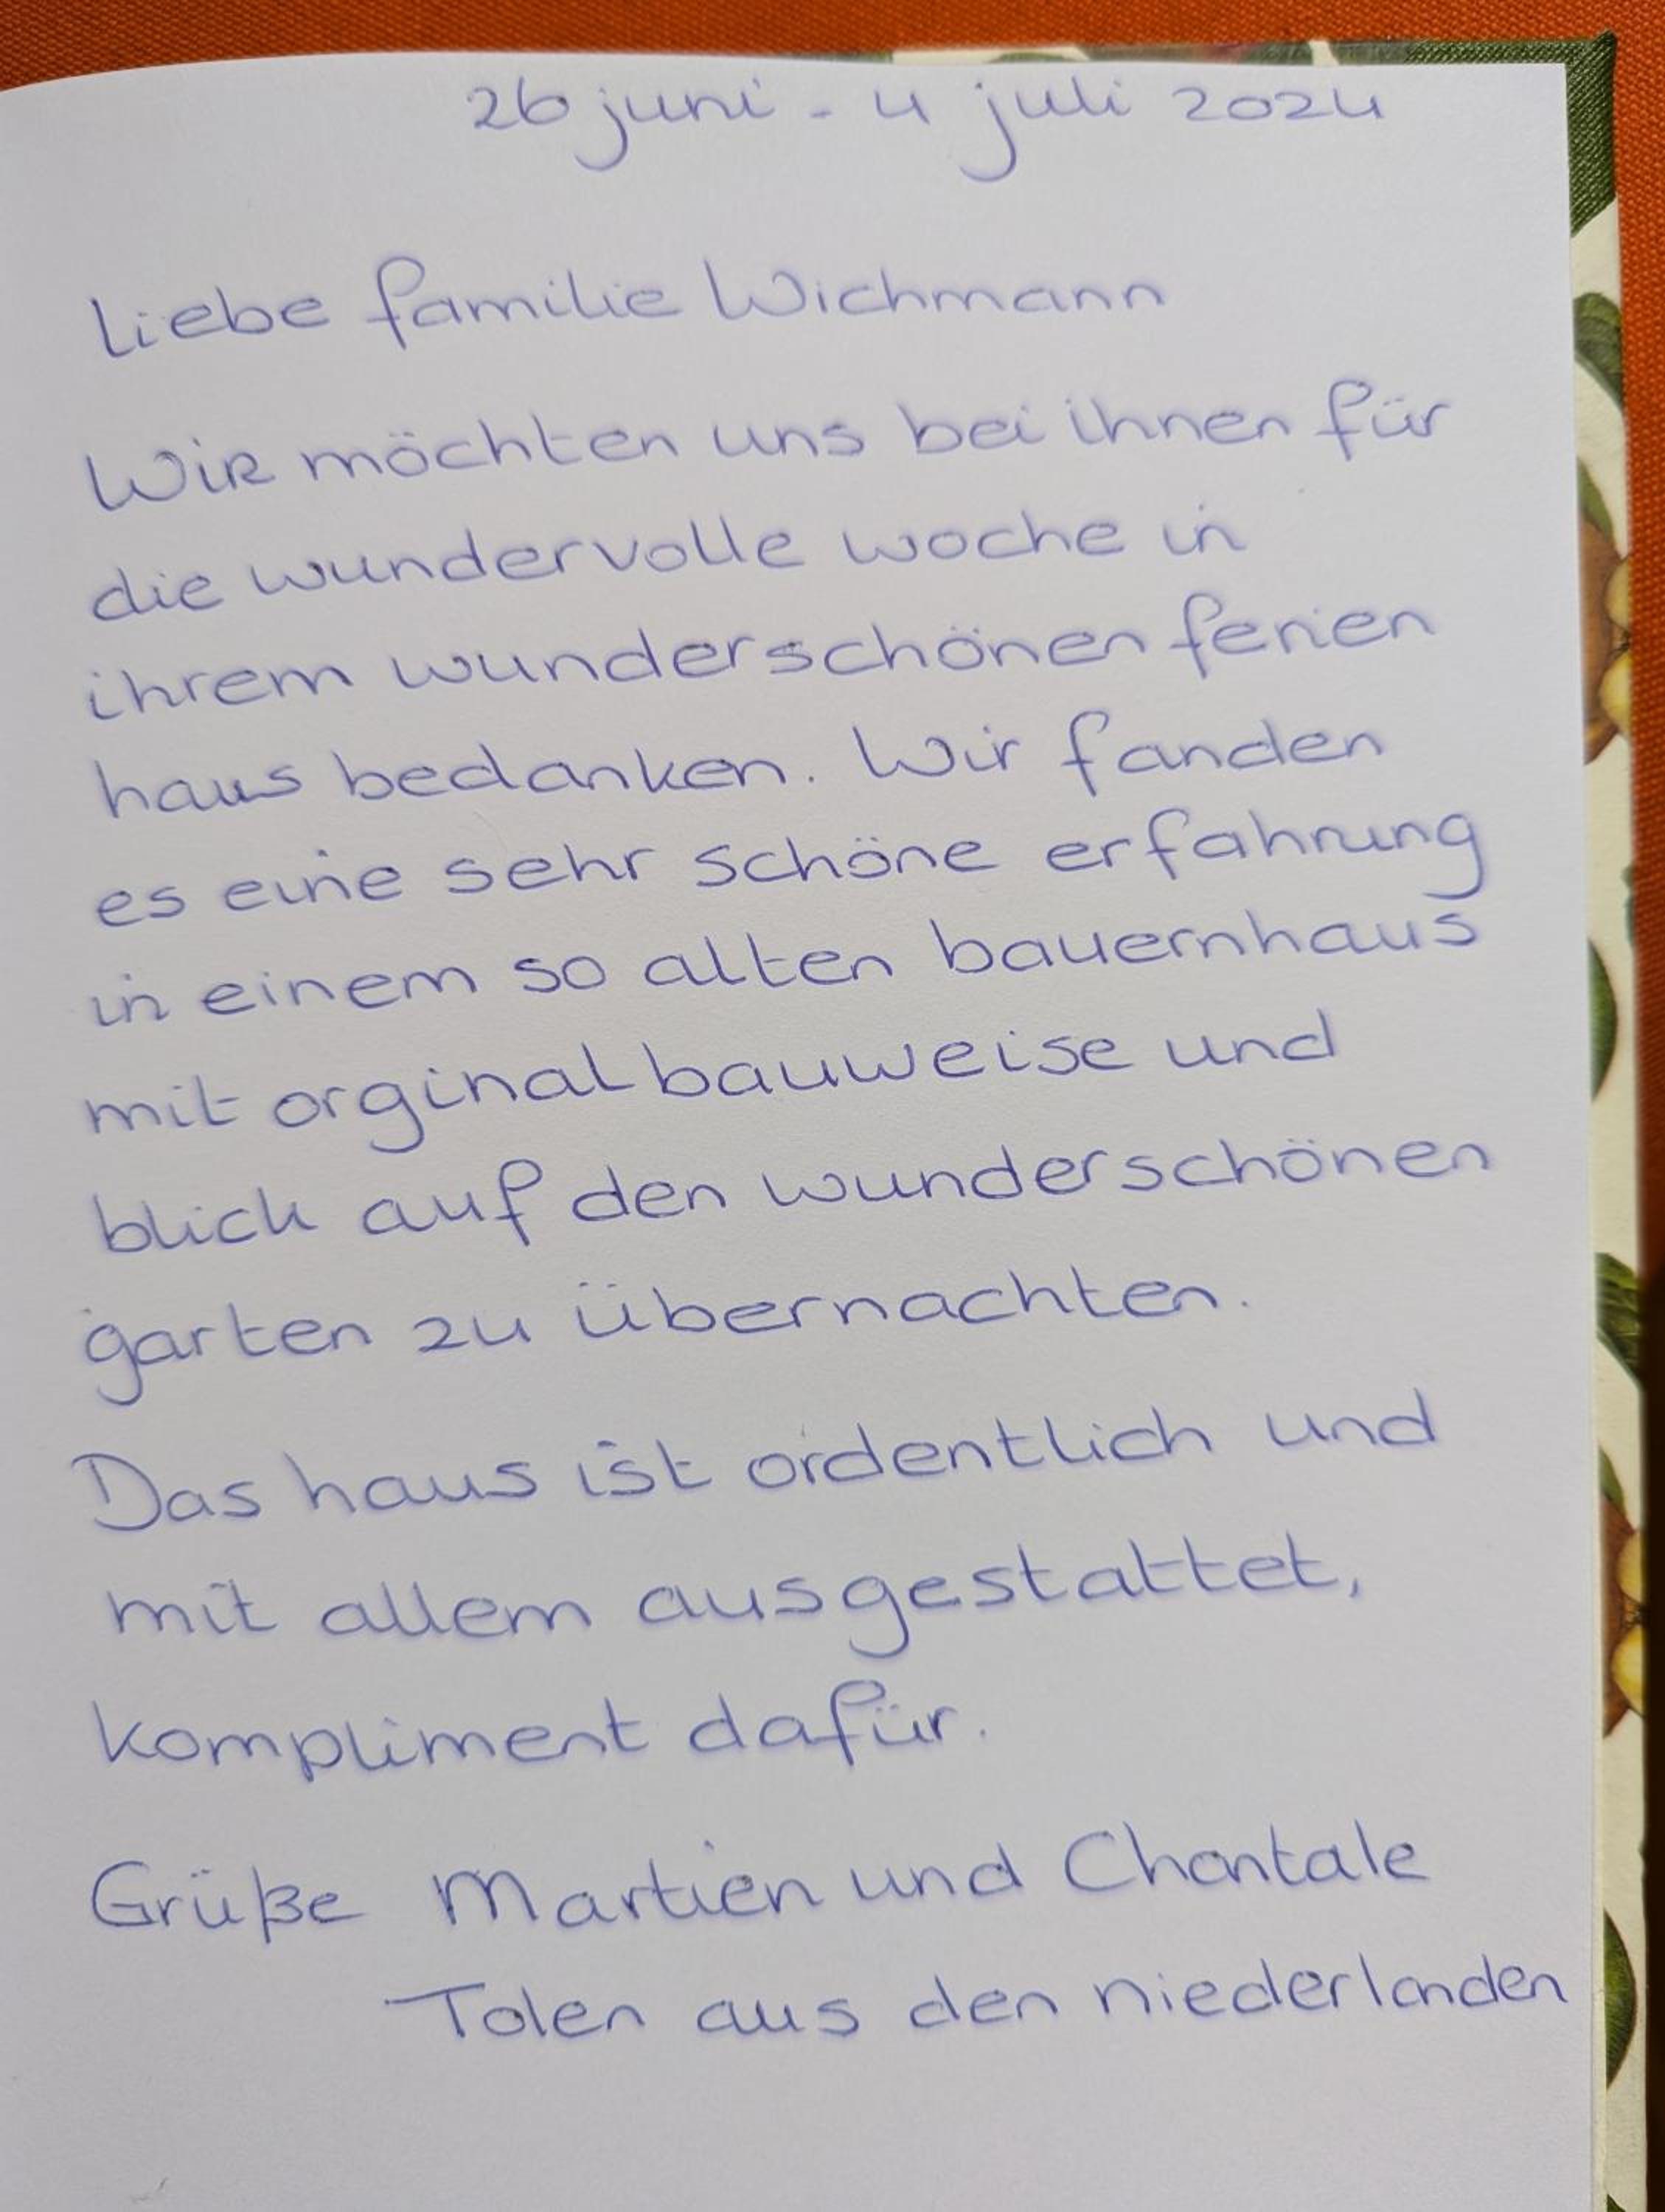 26 juni - 4 juli 2024
Liebe familie Wichmann
Wir möchten uns bei ihnen für
die wundervolle woche in
ihrem wunderschönen ferien
haus bedanken. Wir fanden
es eine sehr schöne erfahrung
in einem so alten bauernhaus
mit orginal bauweise und
blick auf den wunderschönen
garten zu übernachten.
Das haus ist ordentlich und
mit allem ausgestattet,
kompliment dafür.
Grüße Martien und Chantale
Tolen aus den niederlanden